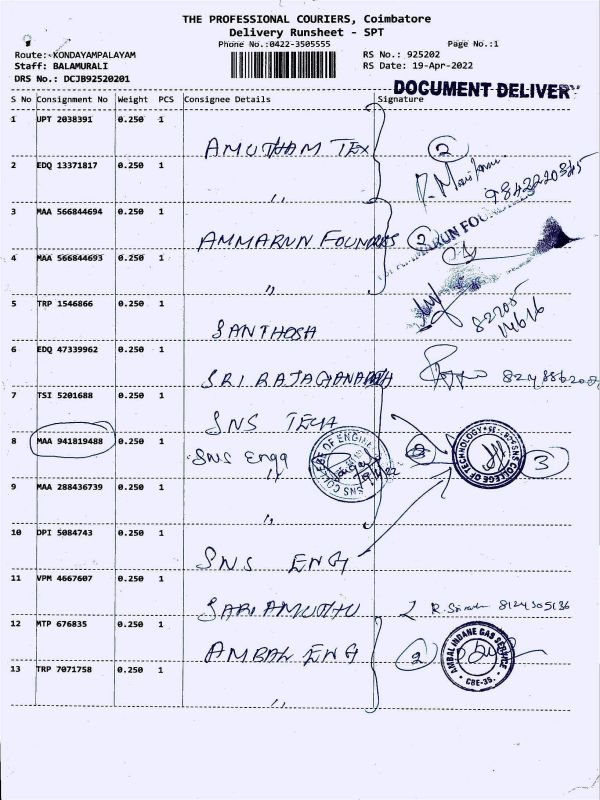 THE PROFESSIONAL COURIERS, Coimbatore
Delivery Runsheet - SPT
Phone No.:0422-3505555
Page No.:1
Route: KONDAYAMPALAYAM
RS No.: 925202
Staff: BALAMURALI
RS Date: 19-Apr-2022
DRS No.: DCJB92520201
DOCUMENT DELIVER
S No Consignment No Weight PCS Consignee Details Signature
1 UPT 2038391 0.250 1 AMUTHAM TEX 2
2 EDQ 13371817 0.250 1 ,,
3 MAA 566844694 0.250 1 AMMARUN FOUNDRIES 2
4 MAA 566844693 0.250 1 ,,
5 TRP 1546866 0.250 1 SANTHOSH 82205 14616
6 EDQ 47339962 0.250 1
7 TSI 5201688 0.250 1 SNS TECH
8 MAA 941819488 0.250 1 SNS Engg 3
SNS COLLEGE OF TECHNOLOGY
9 MAA 288436739 0.250 1 ,,
10 DPI 5084743 0.250 1 SNS ENG
11 VPM 4667607 0.250 1 8124305136
12 MTP 676835 0.250 1 AMBAL ENG 2
AMBAL INDANE GAS SERVICE
CBE-35.
13 TRP 7071758 0.250 1 ,,